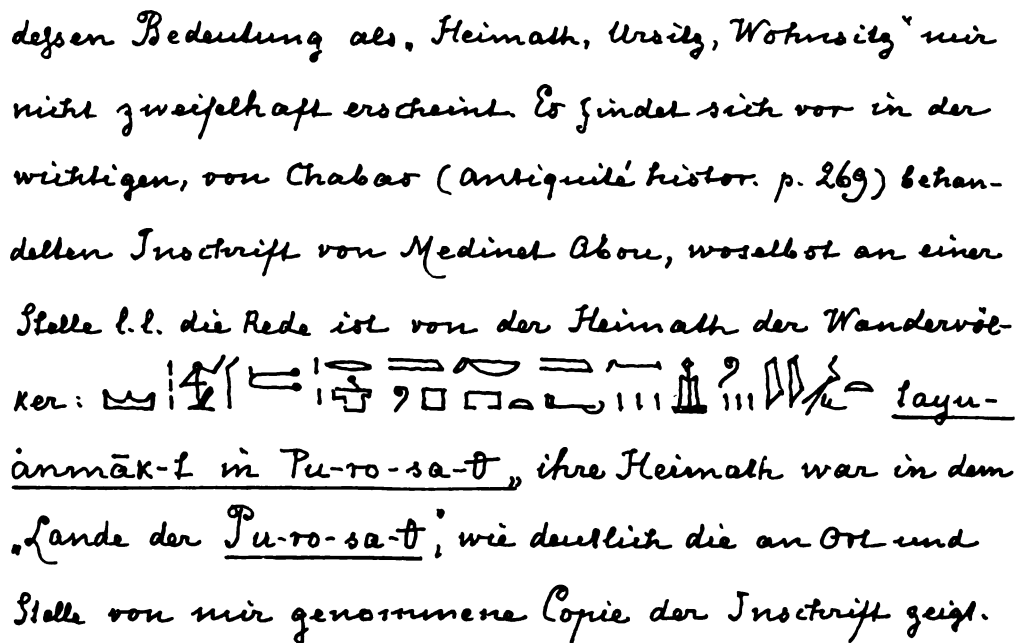 deſsen Bedeutung als „Heimath, Ursitz, Wohnsitz“ mir
nicht zweifelhaft erscheint. Es findet sich vor in der
wichtigen, von Chabas (Antiquité histor. p. 269) behan-
delten Inschrift von Medinet Abou, woselbst an einer
Stelle l.l. die Rede ist von der Heimath der Wandervöl-
ker:
ȧnmāk-t m Pu-ro-sa-t „ihre Heimath war in dem
„Lande der Pu-ro-sa-t“, wie deutlich die an Ort und
Stelle von mir genommene Copie der Inschrift zeigt.